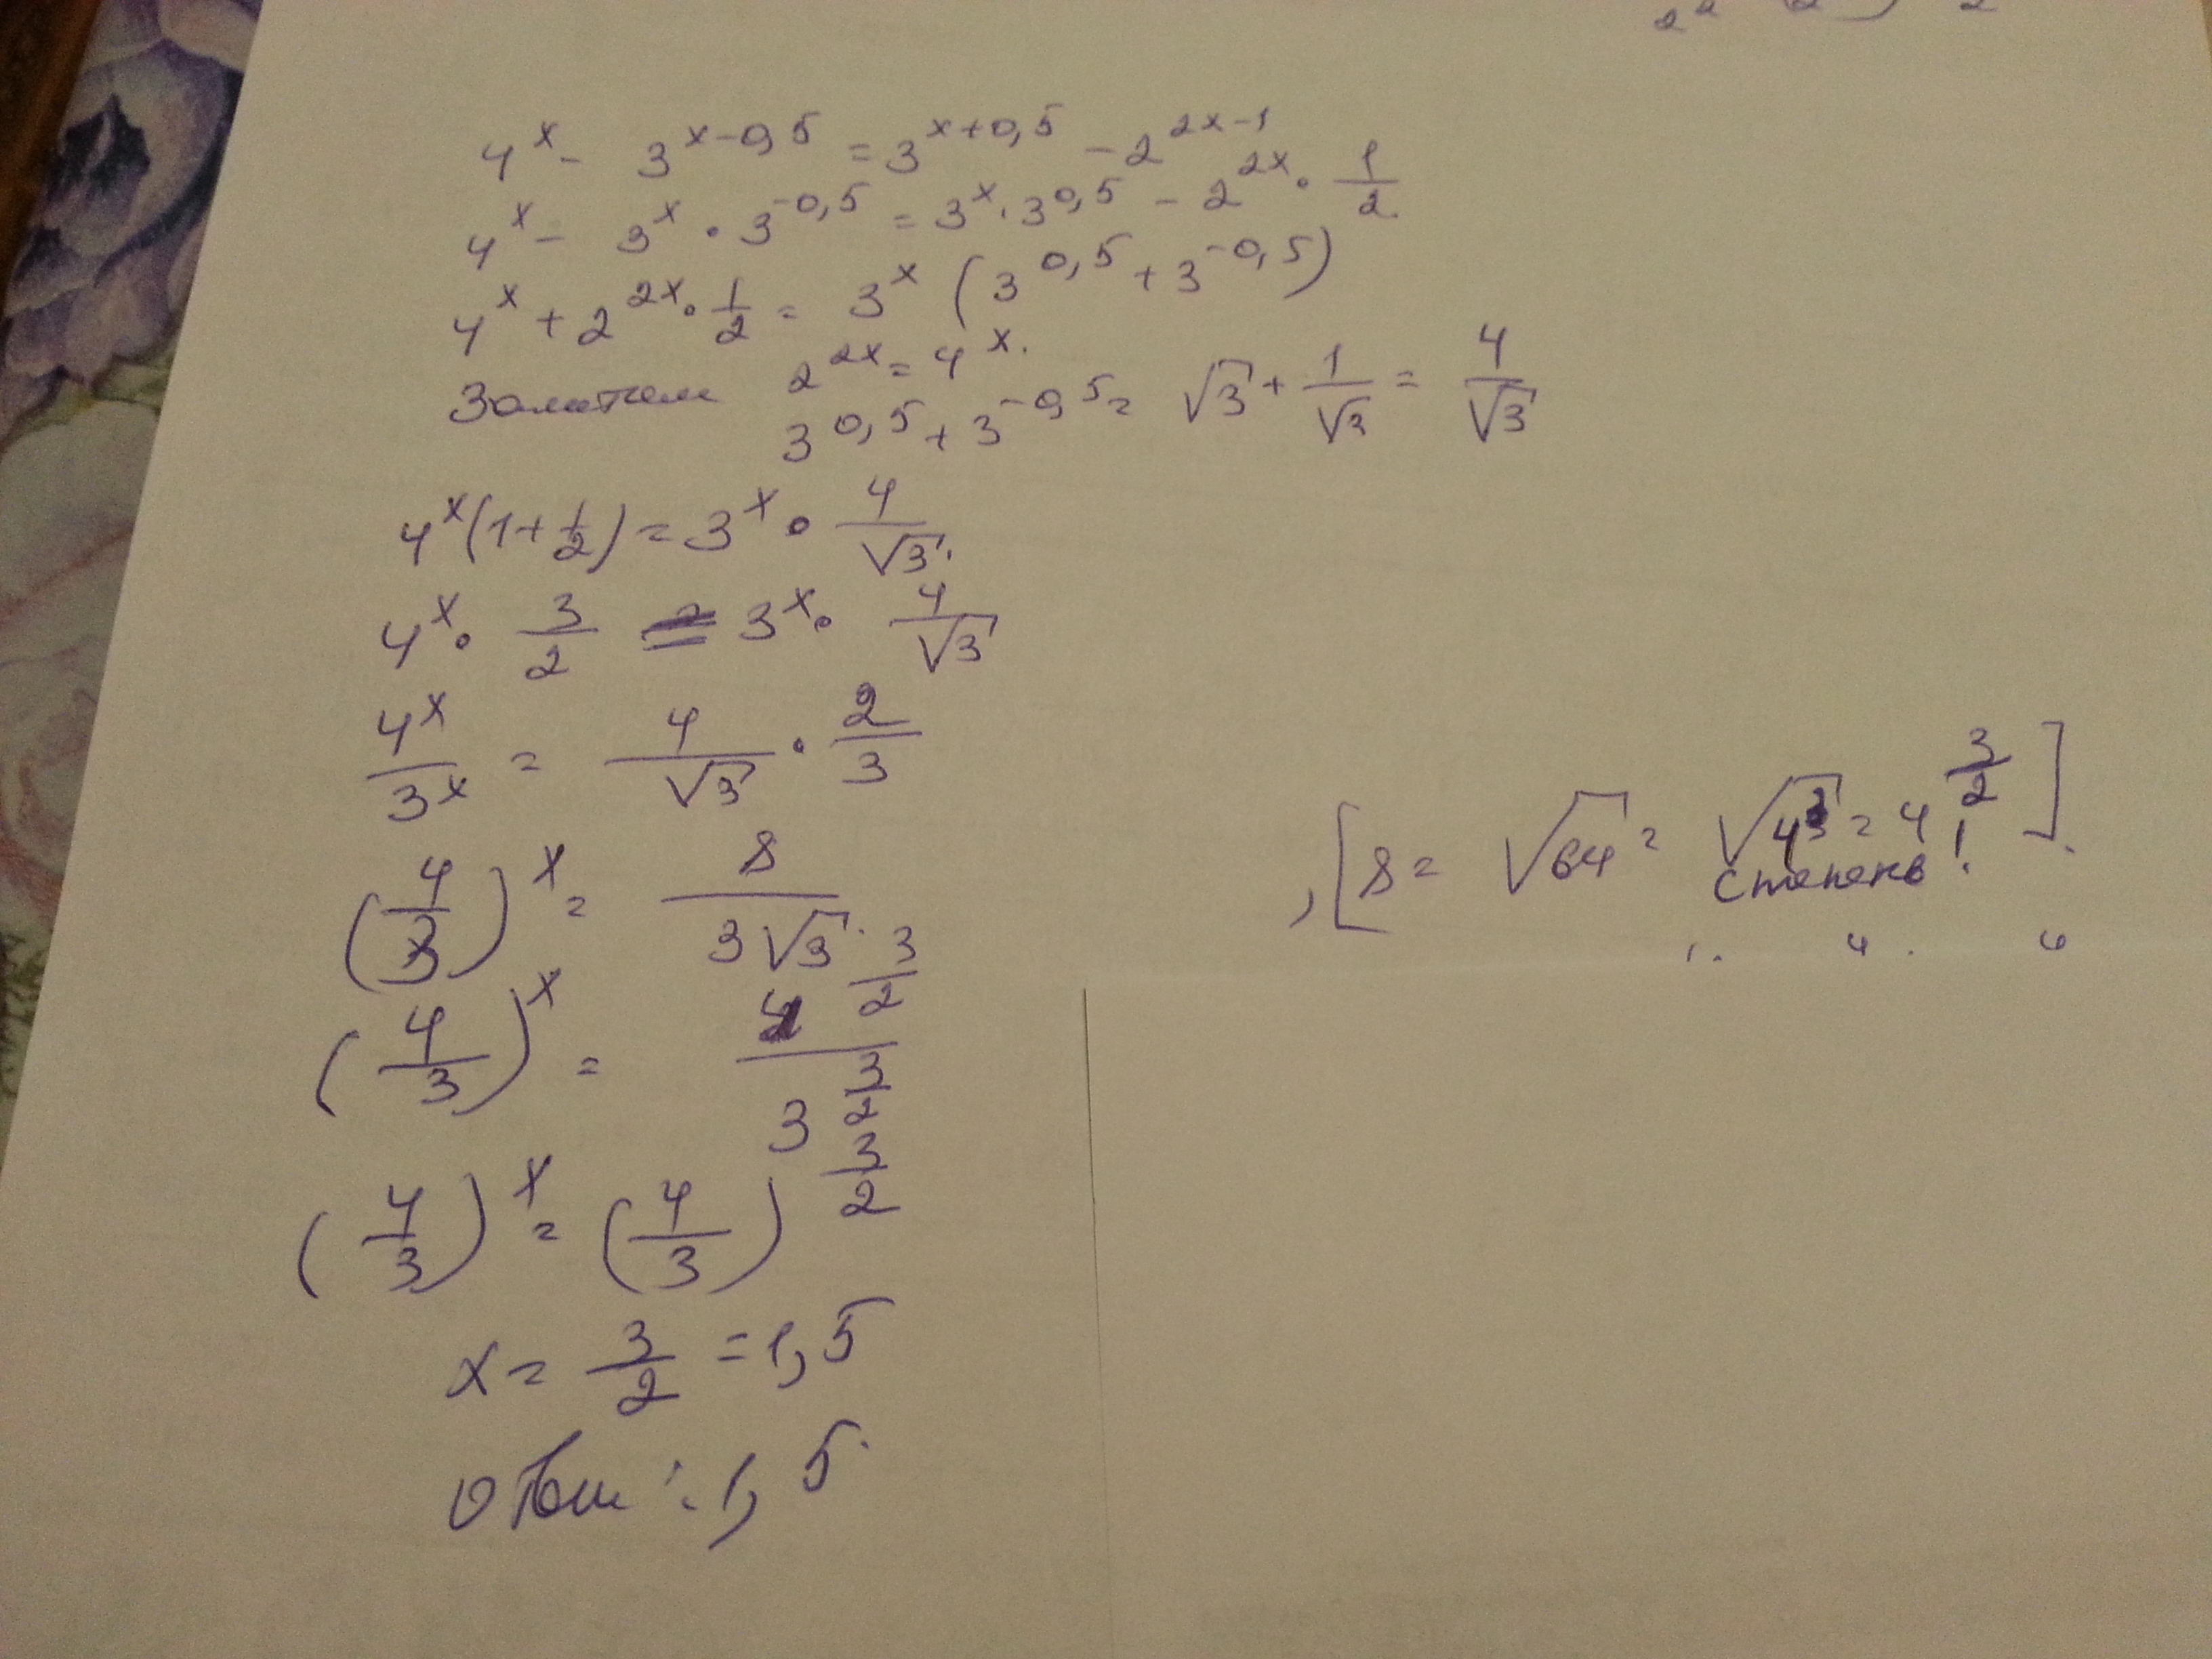 4^x - 3^{x-0,5} = 3^{x+0,5} - 2^{2x-1}
4^x - 3^x · 3^{-0,5} = 3^x · 3^{0,5} - 2^{2x} · \frac{1}{2}
4^x + 2^{2x} · \frac{1}{2} = 3^x (3^{0,5} + 3^{-0,5})
Заметим 2^{2x} = 4^x.
3^{0,5} + 3^{-0,5} = √3 + \frac{1}{√3} = \frac{4}{√3}
4^x (1 + \frac{1}{2}) = 3^x · \frac{4}{√3}.
4^x · \frac{3}{2} = 3^x · \frac{4}{√3}
\frac{4^x}{3^x} = \frac{4}{√3} · \frac{2}{3}
(\frac{4}{3})^x = \frac{8}{3√3}. , [8 = √64 = √4^3 = 4^{\frac{3}{2}}].
степень!
(\frac{4}{3})^x = \frac{4^{\frac{3}{2}}}{3^{\frac{3}{2}}}
(\frac{4}{3})^x = (\frac{4}{3})^{\frac{3}{2}}
x = \frac{3}{2} = 1,5
Ответ: 1,5.